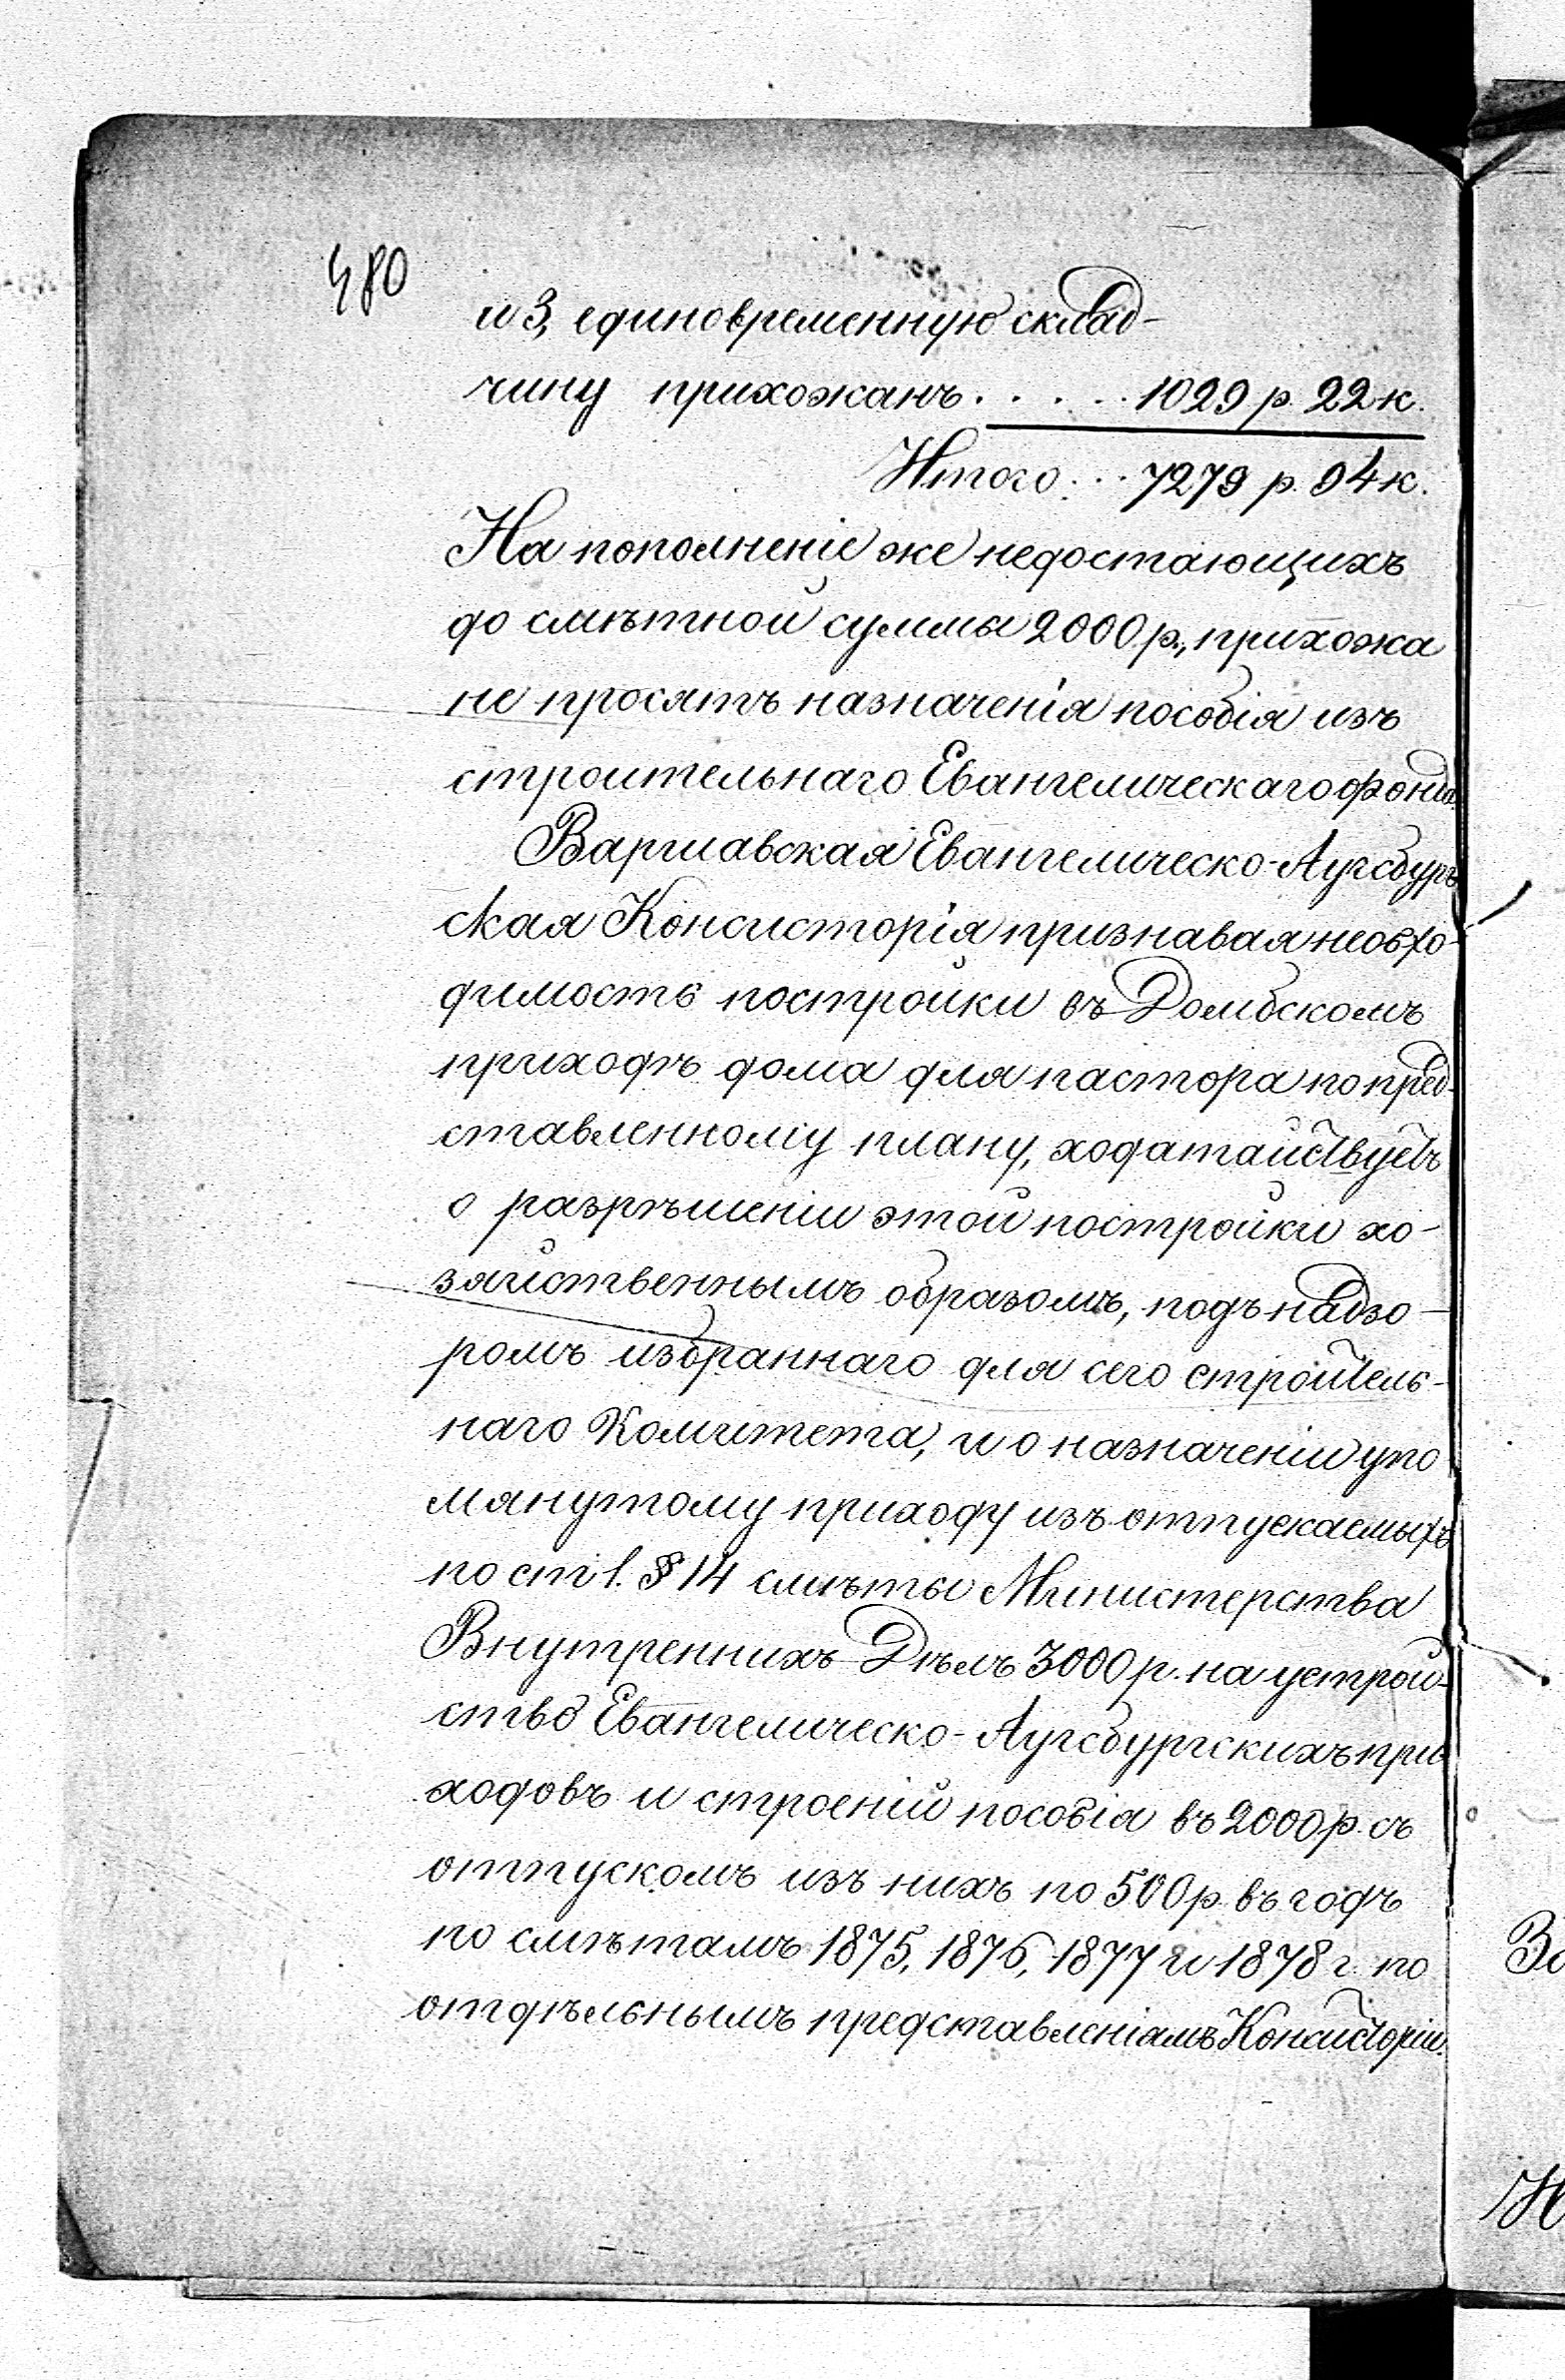 480
и 3, единовременную склад-
чину прихожанъ. . . . . 1029 р. 22 к.
Итого . . . 7279 р. 94 к.
На пополненіе же недостающихъ
до смѣтной суммы 2000 р., прихожа
не просятъ назначенія пособія изъ
строительнаго Евангелическаго фонда.
Варшавская Евангелическо-Аугсбург
ская Консисторія признавая необхо-
димость постройки въ Домбскомъ
приходѣ дома для пастора по пред-
ставленному плану, ходатайствуетъ
о разрѣшеніи этой постройки хо-
зяйственнымъ образомъ, подъ надзо-
ромъ избраннаго для сего строитель-
наго Комитета, и о назначеніи упо
мянутому приходу изъ отпускаемыхъ
по ст 1. § 14 смѣты Министерства
Внутреннихъ Дѣлъ 3000 р. на устрой-
ство Евангелическо-Аугсбургскихъ при-
ходовъ и строеній пособія въ 2000 р. съ
отпускомъ изъ нихъ по 500 р. въ годъ
по смѣтамъ 1875, 1876, 1877 и 1878 г. по
отдѣльнымъ представленіямъ Консисторіи.